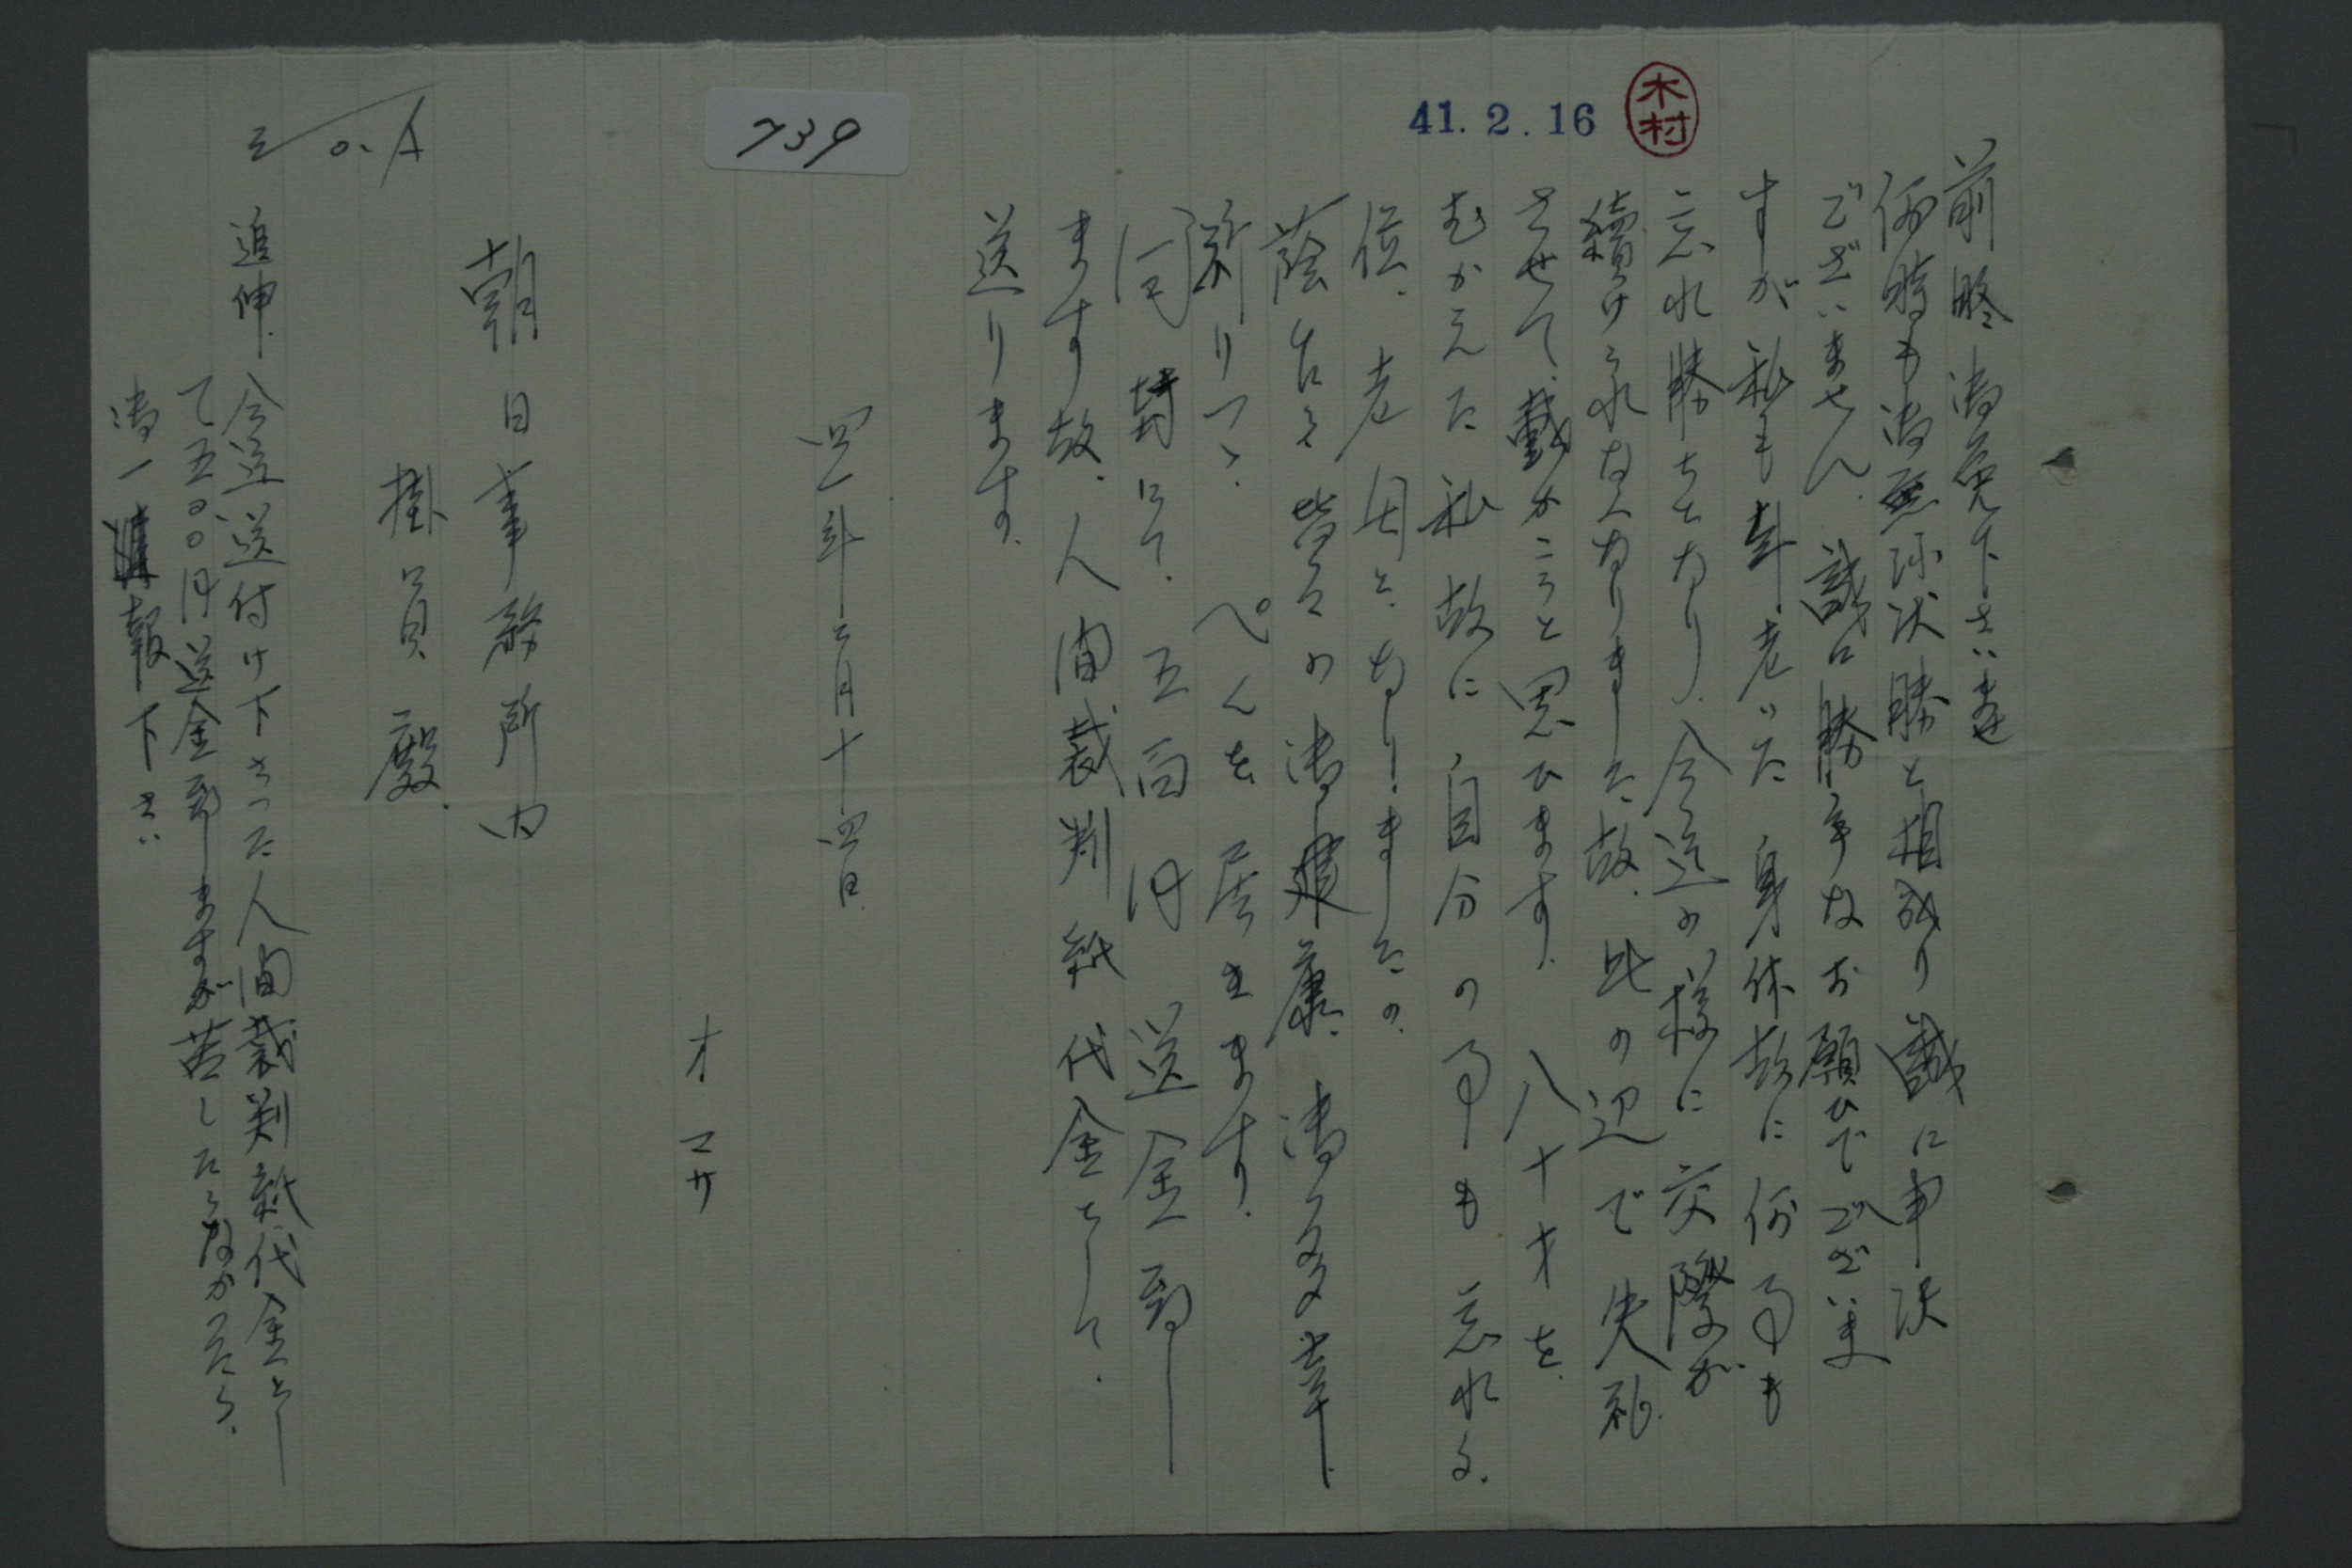 41.2.16
木村
739
前略 御免下さいませ
何時も御無沙汰勝と相成り誠に申訳
ございません、誠に勝手なお願ひでございま
すが私も年老いた身体故に何事も
忘れ勝ちとなり、今迄の様に交際が
続けられなくなりました故、此の辺で失礼
させて、戴かこうと思ひます。八十才を
むかえた私故に自分の事も忘れる。
位、老困と、なりましたの。
蔭乍ら皆々の御健康、御多幸
祈りつゝ、ぺんを居きます。
同封にて、五百円送金致し
ます故、人間裁判紙代金として、
送ります。
四一年二月十四日
才マサ
朝日事務所内
掛員殿
追伸 今迄送付け下さった人間裁判紙代金とし
て五〇〇円送金致しますが若したらなかったら、
御一報下さい